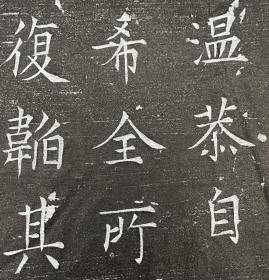 温恭自
希全所
復韜其